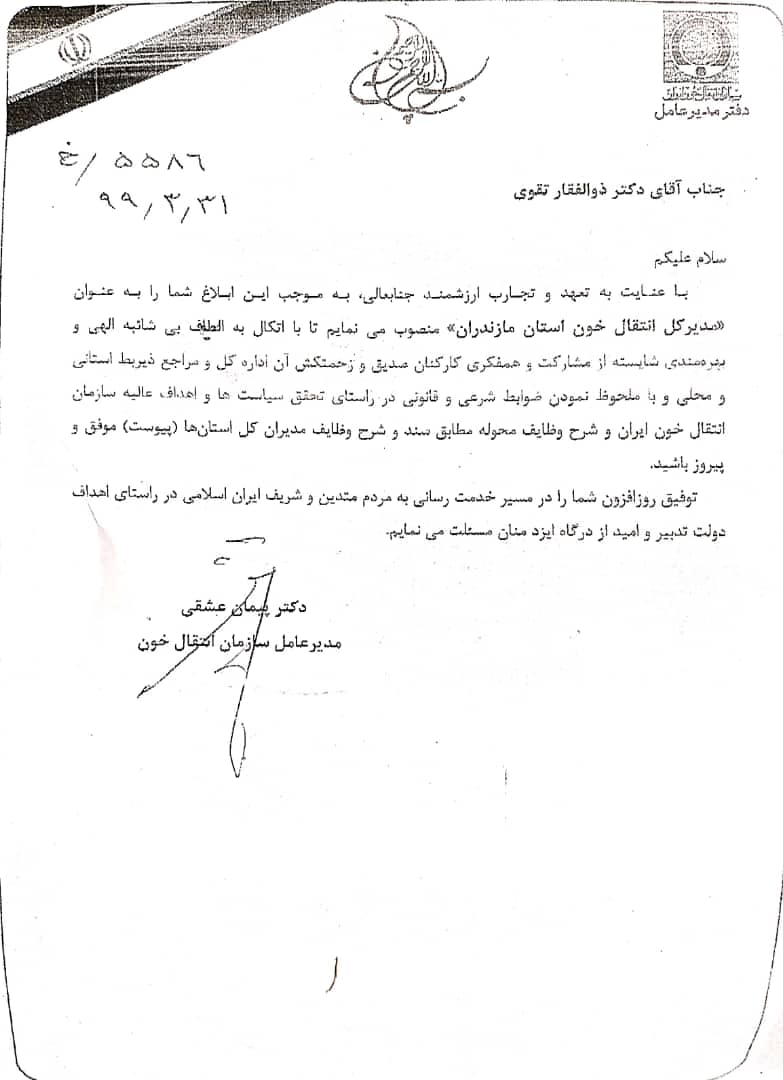 سازمان انتقال خون ایران
دفتر مدیرعامل
۵۵۸۶ /خ
۹۹٫۳٫۳۱
جناب آقای دکتر ذوالفقار تقوی
سلام علیکم
با عنایت به تعهد و تجارب ارزشمند جنابعالی، به موجب این ابلاغ شما را به عنوان
«مدیرکل انتقال خون استان مازندران» منصوب می نمایم تا با اتکال به الطاف بی شائبه الهی و
بهره‌مندی شایسته از مشارکت و همفکری کارکنان صدیق و زحمتکش آن اداره کل و مراجع ذیربط استانی
و محلی و با ملحوظ نمودن ضوابط شرعی و قانونی در راستای تحقق سیاست ها و اهداف عالیه سازمان
انتقال خون ایران و شرح وظایف محوله مطابق سند و شرح وظایف مدیران کل استان‌ها (پیوست) موفق و
پیروز باشید.
توفیق روزافزون شما را در مسیر خدمت رسانی به مردم متدین و شریف ایران اسلامی در راستای اهداف
دولت تدبیر و امید از درگاه ایزد منان مسئلت می نمایم.
دکتر پیمان عشقی
مدیرعامل سازمان انتقال خون